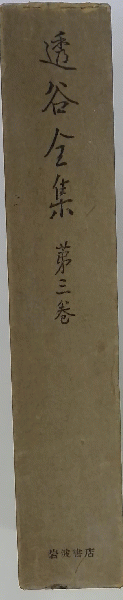 透谷全集 第三巻
岩波書店